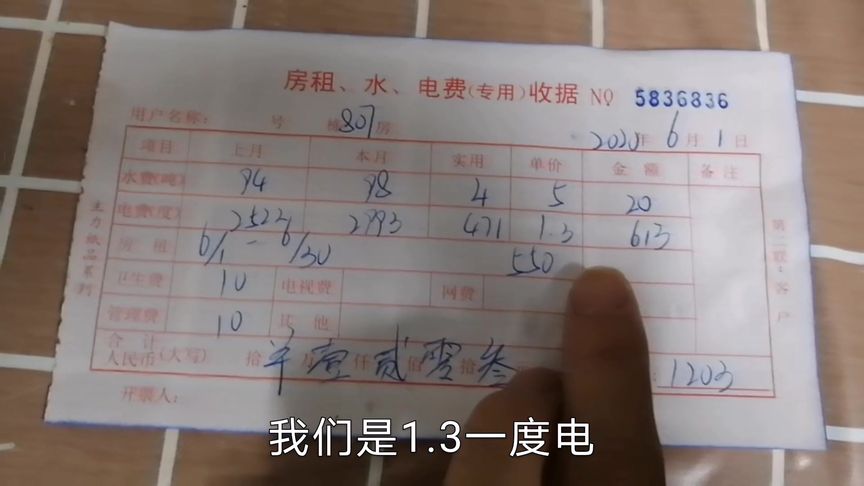 房租、水、电费(专用)收据 NO 5836836
用户名称: 号 栋807房 2020年6月1日
项目 上月 本月 实用 单价 金额 备注
水费(吨) 94 98 4 5 20
电费(度) 2522 2993 471 1.3 613
房租 6/1-6/30 550
卫生费 10 电视费 网费
管理费 10 其他
合计
人民币(大写) 拾 万 壹 仟 贰 佰 零 拾 叁 1203
开票人:
主力纸品系列
第二联:客户
我们是1.3一度电